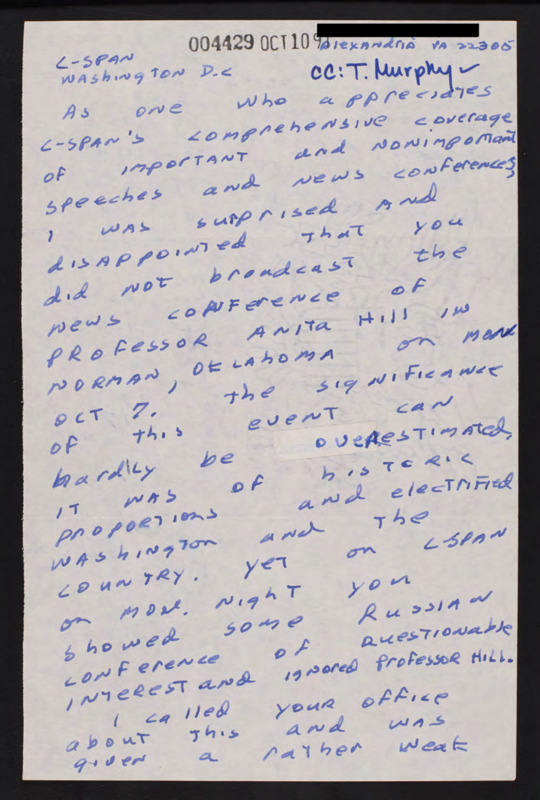 004429 OCT 10 91
Alexandria VA 22305
C-SPAN
Washington D.C
CC: T. Murphy
As one who appreciates
C-SPAN's comprehensive coverage
of important and nonimportant
speeches and news conferences,
I was surprised and
disappointed that you
did not broadcast the
news conference of
Professor Anita Hill in
Norman, Oklahoma on
Oct 7. the significance
of this event can
hardly be overestimated,
it was of historic
proportions and electrified
Washington and the
country. yet on C-SPAN
on Mon. night you
showed some Russian
conference of questionable
interest and ignored Professor Hill.
I called your office
about this and was
given a rather weak